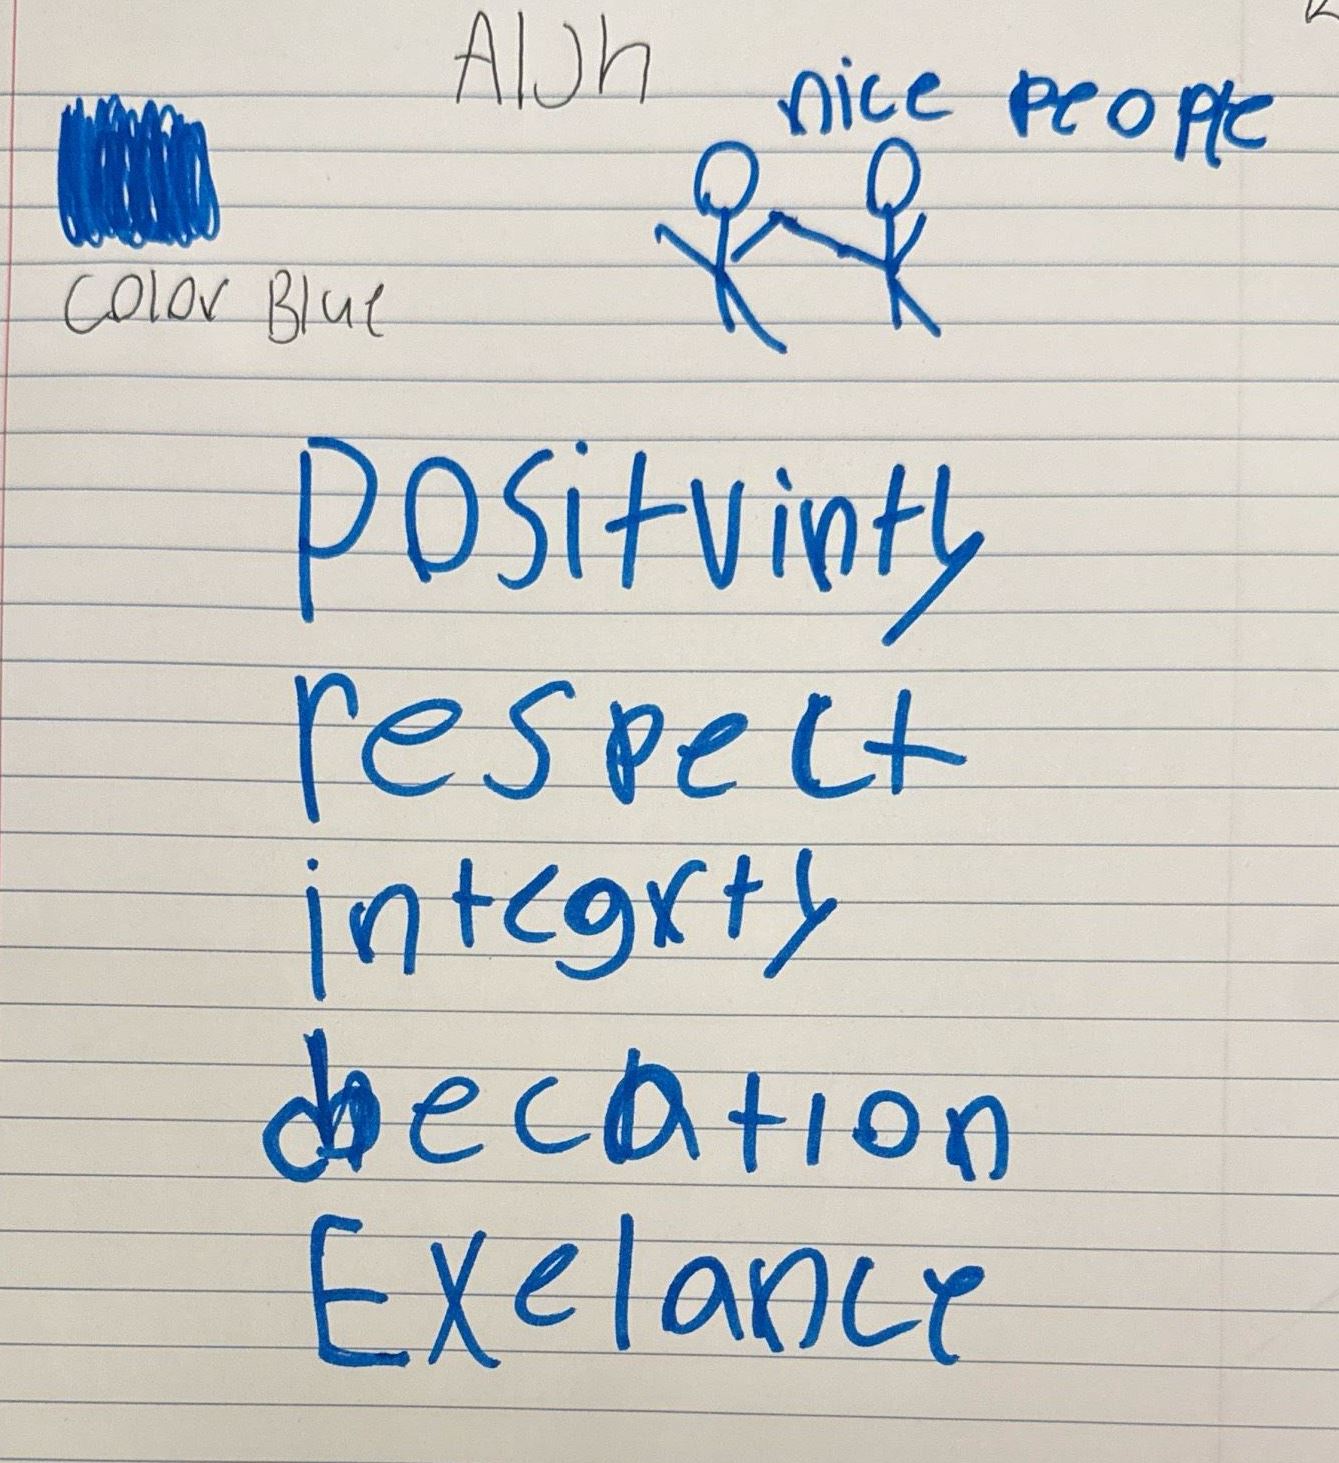 AlJh
nice people
Color Blue
Positvinty
respect
integrty
decation
Exelance